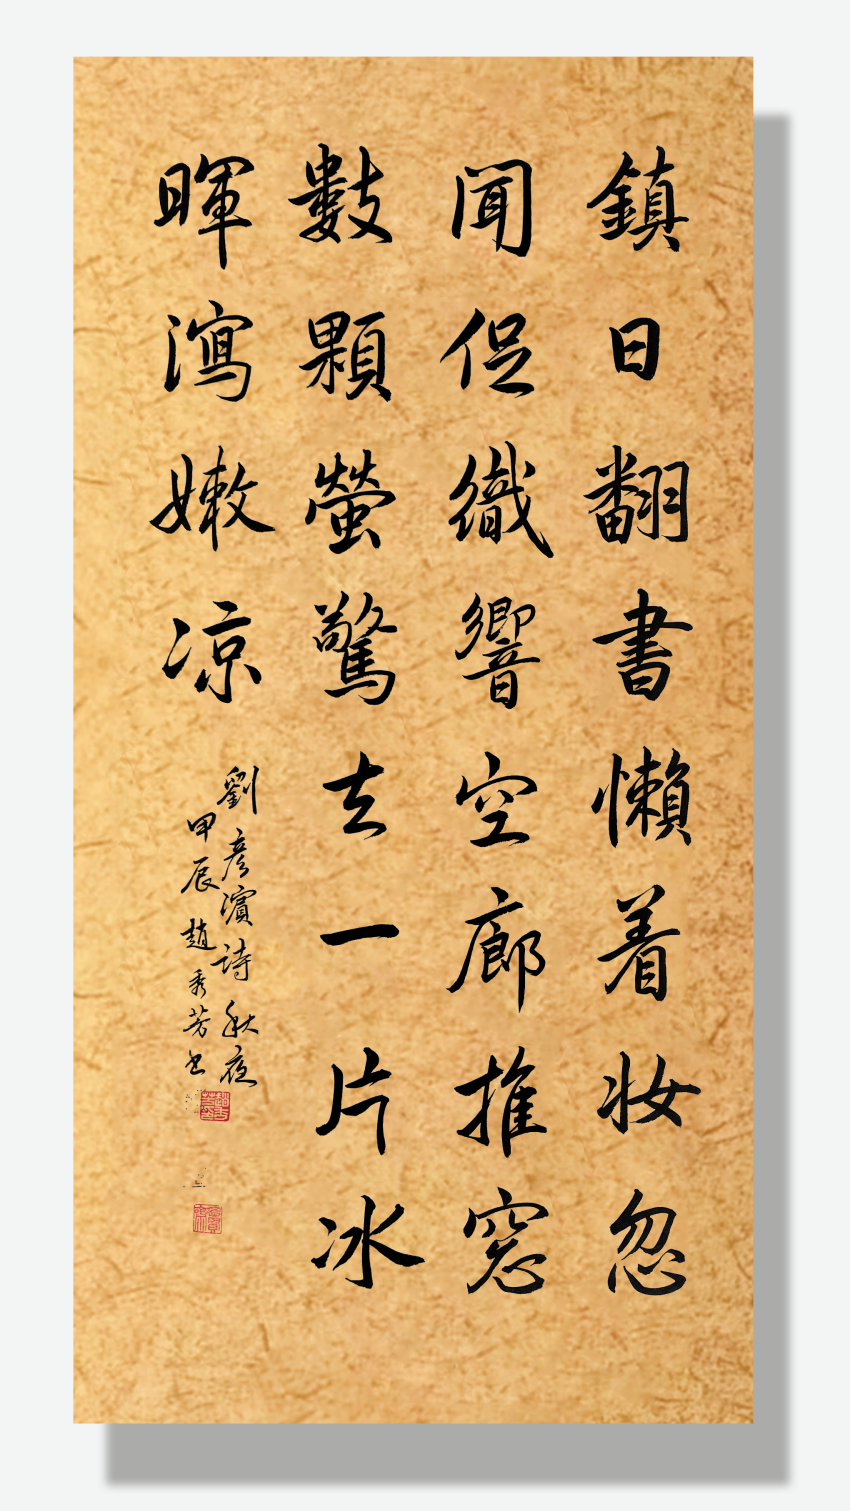 鎮日翻書懶着妝忽
聞促織響空廊推窓
數顆螢驚去一片冰
暉瀉嫩凉
劉彥濱詩秋夜
甲辰趙秀芳书